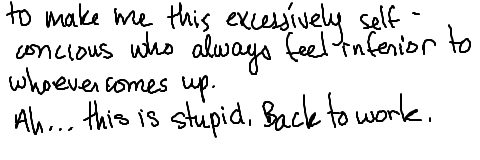 to make me this excessively self-
concious who always feel inferior to
whoever comes up.
Ah... this is stupid. Back to work.